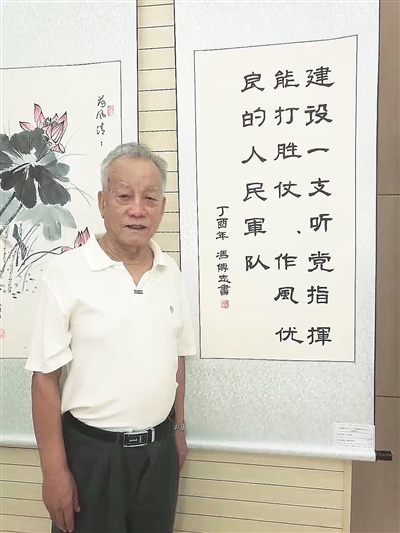 建设一支听党指挥
能打胜仗、作风优
良的人民軍队
丁酉年 馮傅書
荷风清